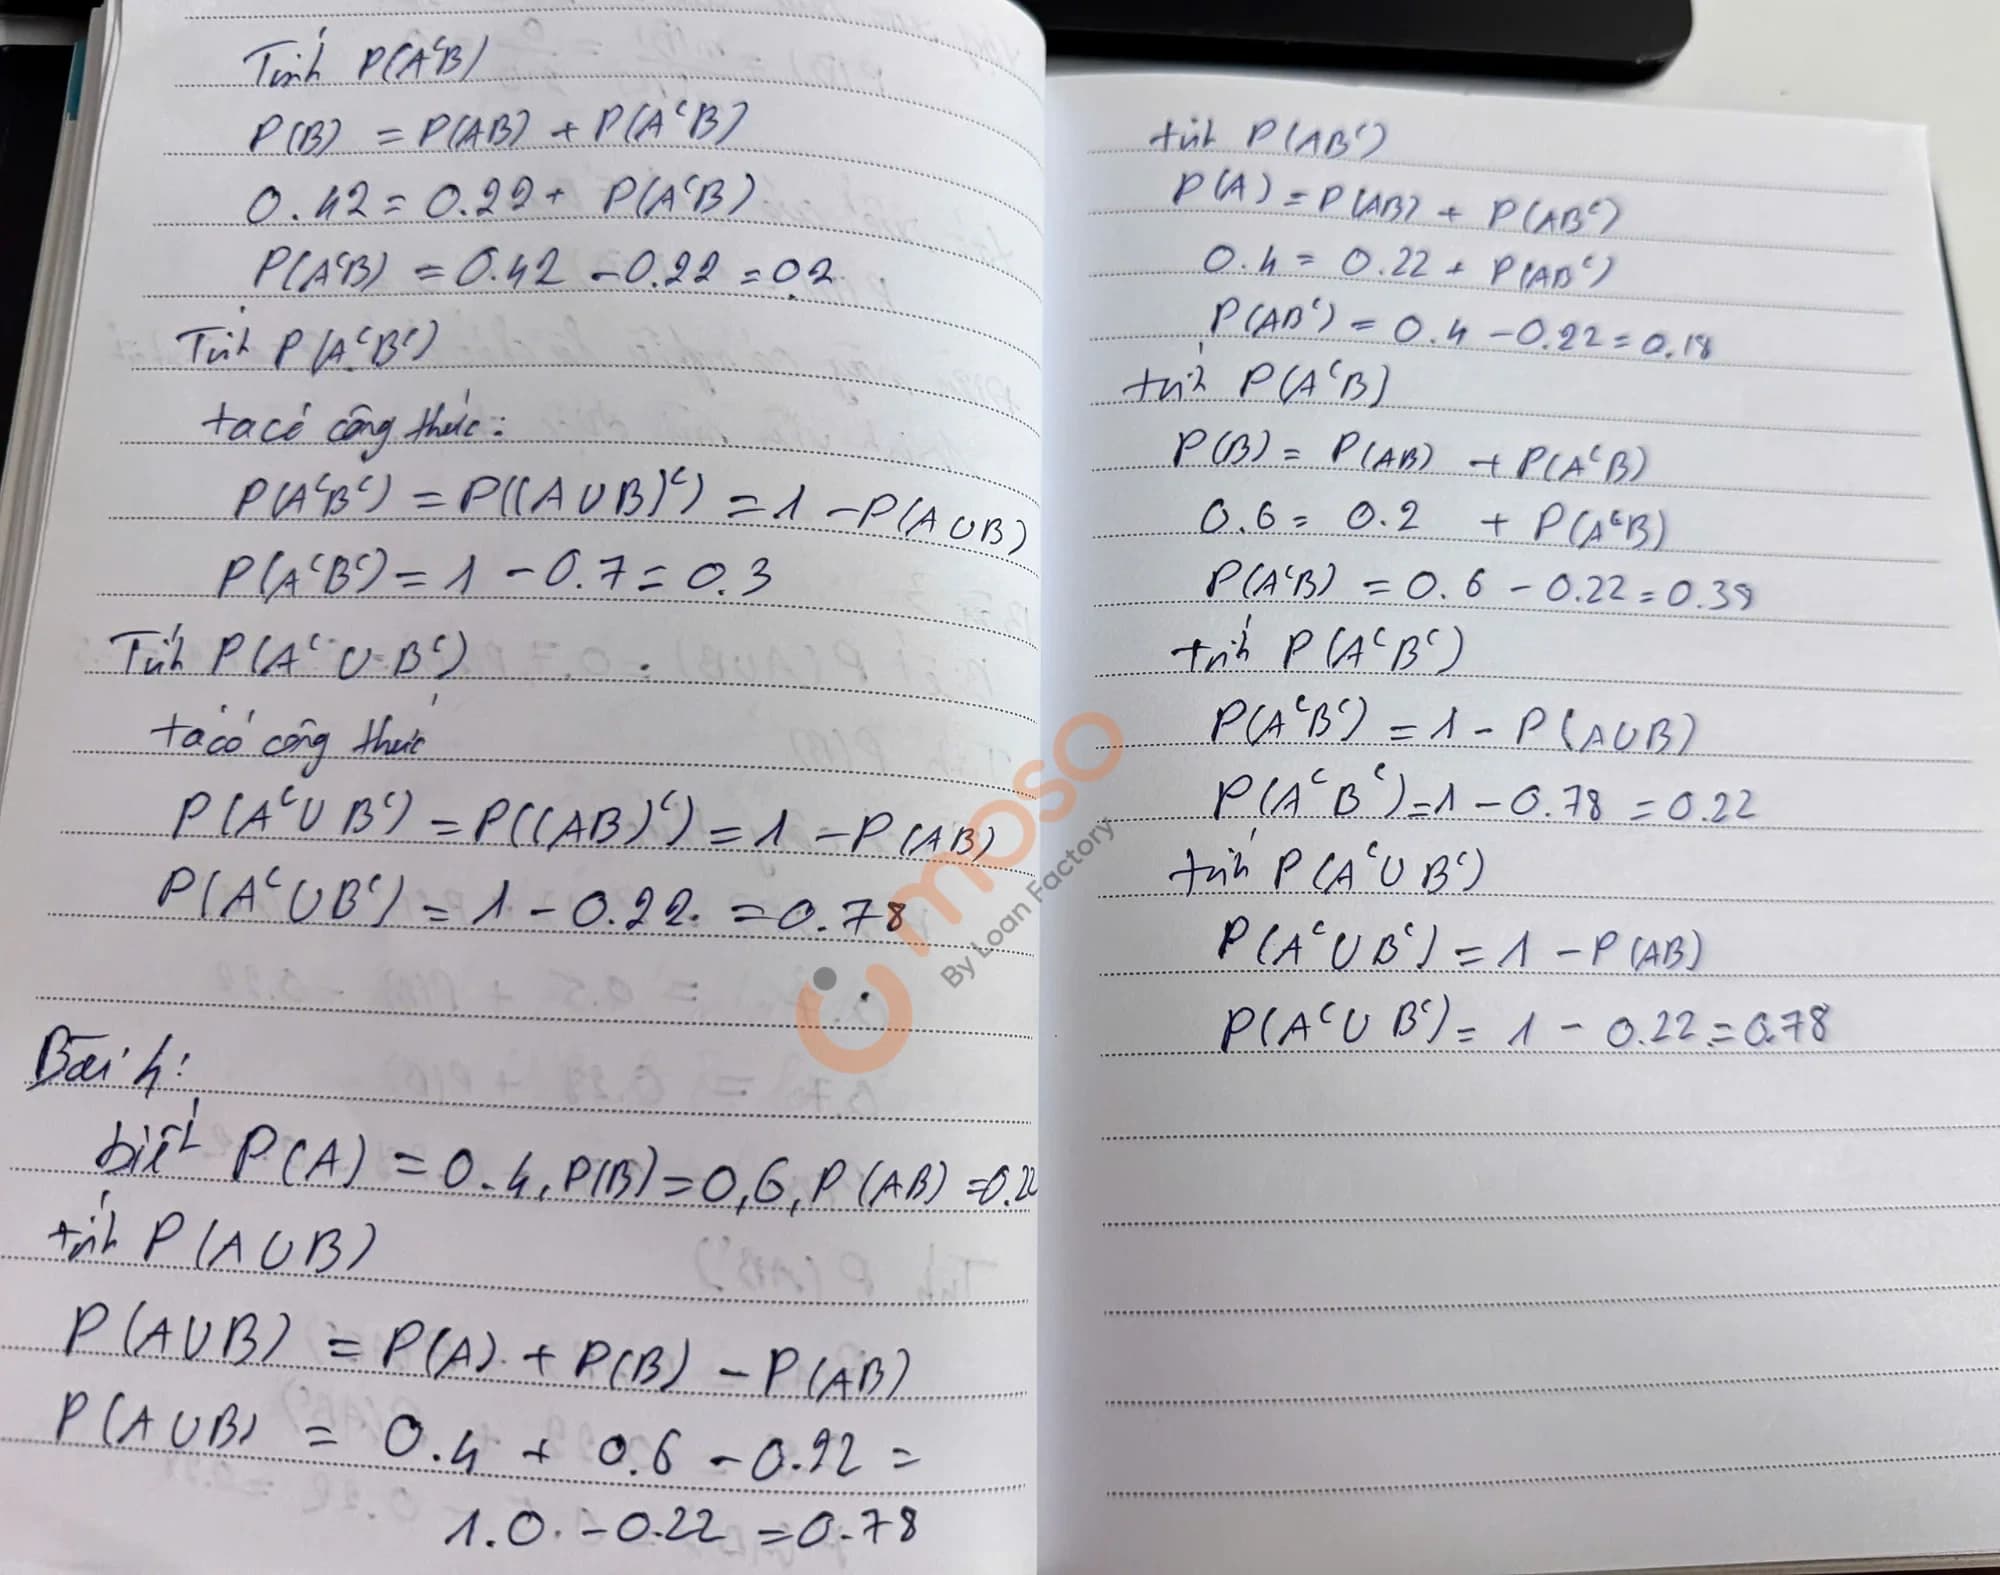 Tính P(AᶜB)
P(B) = P(AB) + P(AᶜB)
0.42 = 0.22 + P(AᶜB)
P(AᶜB) = 0.42 - 0.22 = 0.2
Tính P(AᶜBᶜ)
ta có công thức:
P(AᶜBᶜ) = P((A∪B)ᶜ) = 1 - P(A∪B)
P(AᶜBᶜ) = 1 - 0.7 = 0.3
Tính P(Aᶜ∪Bᶜ)
ta có công thức
P(Aᶜ∪Bᶜ) = P((AB)ᶜ) = 1 - P(AB)
P(Aᶜ∪Bᶜ) = 1 - 0.22 = 0.78
Bài 4:
biết P(A) = 0.4, P(B) = 0,6, P(AB) = 0.22
tính P(A∪B)
P(A∪B) = P(A) + P(B) - P(AB)
P(A∪B) = 0.4 + 0.6 - 0.22 =
1.0 - 0.22 = 0.78
tính P(ABᶜ)
P(A) = P(AB) + P(ABᶜ)
0.4 = 0.22 + P(ABᶜ)
P(ABᶜ) = 0.4 - 0.22 = 0.18
tính P(AᶜB)
P(B) = P(AB) + P(AᶜB)
0.6 = 0.2 + P(AᶜB)
P(AᶜB) = 0.6 - 0.22 = 0.38
tính P(AᶜBᶜ)
P(AᶜBᶜ) = 1 - P(A∪B)
P(AᶜBᶜ) = 1 - 0.78 = 0.22
tính P(Aᶜ∪Bᶜ)
P(Aᶜ∪Bᶜ) = 1 - P(AB)
P(Aᶜ∪Bᶜ) = 1 - 0.22 = 0.78
moso
By Loan Factory